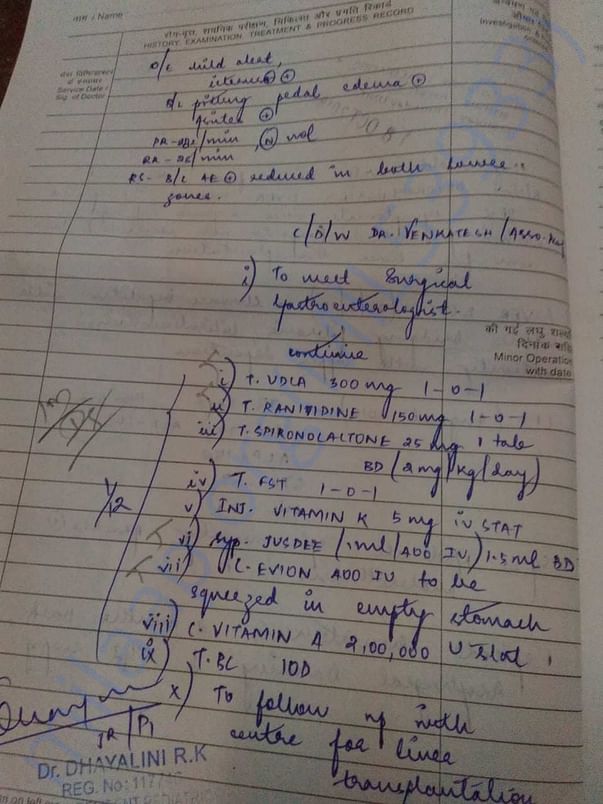 नाम / Name
रोग-वृत्त, शारीरिक परीक्षण, चिकित्सा और प्रगति रिकार्ड
HISTORY, EXAMINATION TREATMENT & PROGRESS RECORD
Service Date /
Sig. of Doctor
O/E child alert,
icterus ⊕
B/L pitting pedal edema ⊕
⊕
/min, Ⓝ vol
RR - /min
RS - B/L AE ⊕ reduced in both lower
zones.
C/D/W DR. VENKATESH / ASSO.
i) To meet Surgical
Gastroenterologist.
की गई लघु
दिनांक
Minor Operation
with date
continue
i) T. UDLA 300 mg 1-0-1
ii) T. RANITIDINE 150 mg 1-0-1
iii) T. SPIRONOLACTONE 25 mg 1 tab
BD (2 mg/kg/day)
iv) T. FST 1-0-1
1/12
v) INJ. VITAMIN K 5 mg iv STAT
vi) Syp. JUSDEE (1 ml/400 IU) 1.5 ml BD
vii) C. EVION 400 IU to be
squeezed in empty stomach
viii) C. VITAMIN A 2,00,000 U stat
ix) T. BC 1OD
x) To follow up with
centre for liver
transplantation
JR / P1
Dr. DHAYALINI R.K
REG. No: